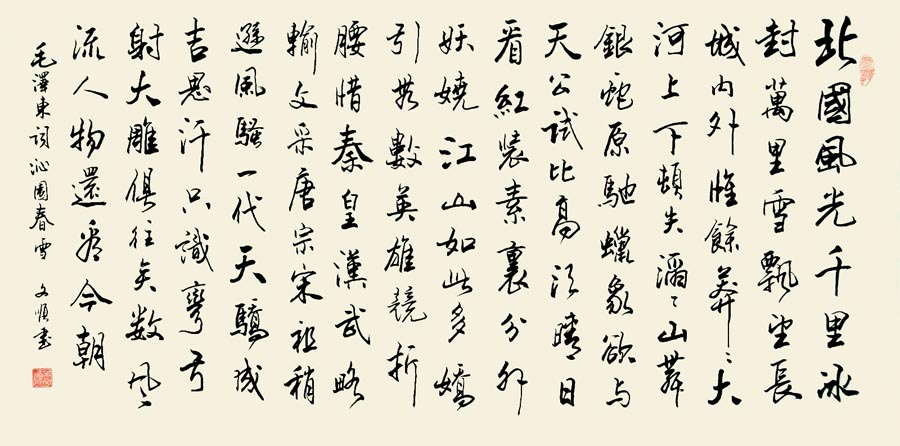 北國風光千里冰
封萬里雪飄望長
城内外惟餘莽々大
河上下頓失滔々山舞
銀蛇原馳蠟象欲与
天公試比高須晴日
看紅裝素裹分外
妖嬈江山如此多嬌
引無數英雄競折
腰惜秦皇漢武略
輸文采唐宗宋祖稍
遜風騷一代天驕成
吉思汗只識彎弓
射大雕俱往矣数风
流人物還看今朝
毛澤東詞沁園春雪 文順書